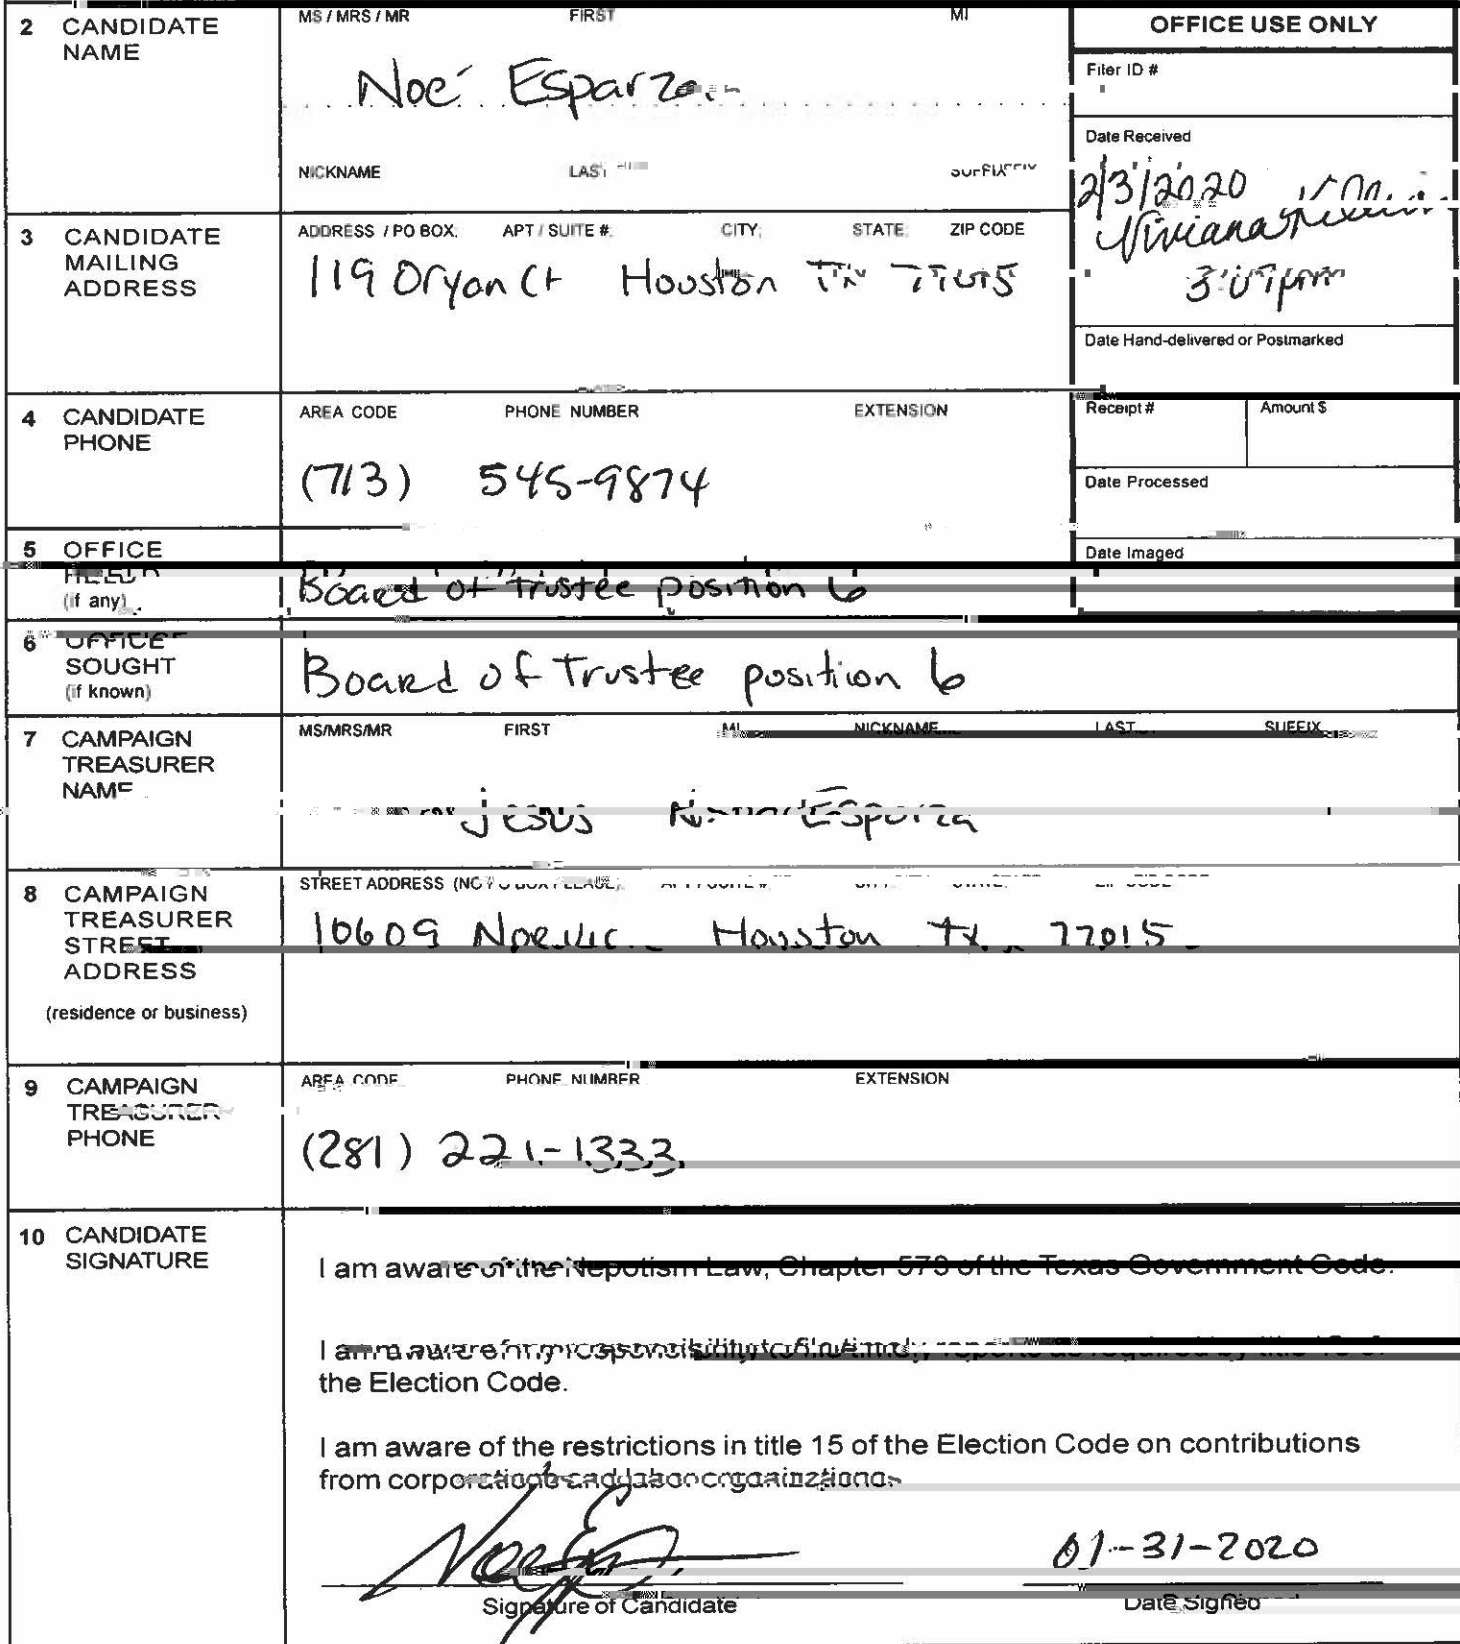 2 CANDIDATE NAME
MS / MRS / MR FIRST MI
Noé Esparza
NICKNAME LAST SUFFIX
OFFICE USE ONLY
Filer ID #
Date Received
2/3/2020
Viviana
3:07pm
Date Hand-delivered or Postmarked
Receipt # Amount $
Date Processed
Date Imaged
3 CANDIDATE MAILING ADDRESS
ADDRESS / PO BOX; APT / SUITE #; CITY; STATE; ZIP CODE
119 Oryan Ct Houston TX 77015
4 CANDIDATE PHONE
AREA CODE PHONE NUMBER EXTENSION
(713) 545-9874
5 OFFICE HELD (if any)
Board of Trustee position 6
6 OFFICE SOUGHT (if known)
Board of Trustee position 6
7 CAMPAIGN TREASURER NAME
MS/MRS/MR FIRST MI NICKNAME LAST SUFFIX
Jesus Esparza
8 CAMPAIGN TREASURER STREET ADDRESS
(residence or business)
STREET ADDRESS (NO PO BOX PLEASE); APT / SUITE #; CITY; STATE; ZIP CODE
10609 Houston Tx 77015
9 CAMPAIGN TREASURER PHONE
AREA CODE PHONE NUMBER EXTENSION
(281) 221-1333
10 CANDIDATE SIGNATURE
I am aware of the Nepotism Law, Chapter 573 of the Texas Government Code.
I am aware of my responsibility to file timely reports as required by title 15 of
the Election Code.
I am aware of the restrictions in title 15 of the Election Code on contributions
from corporations and labor organizations.
01-31-2020
Signature of Candidate Date Signed